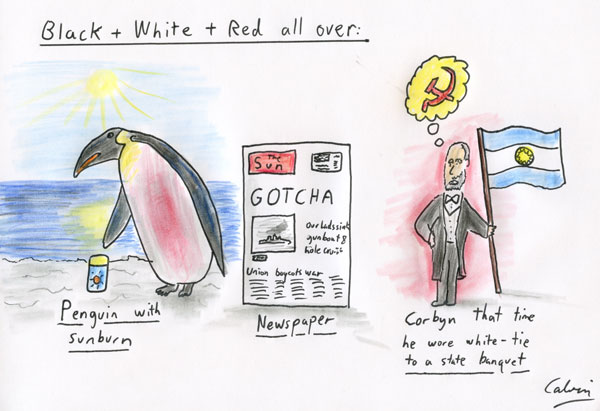 Black + White + Red all over:
The
Sun
GOTCHA
Our lads sink
gunboat &
hole cruiser
Union boycotts war
Penguin with
sunburn
Newspaper
Corbyn that time
he wore white-tie
to a state banquet
Calvin